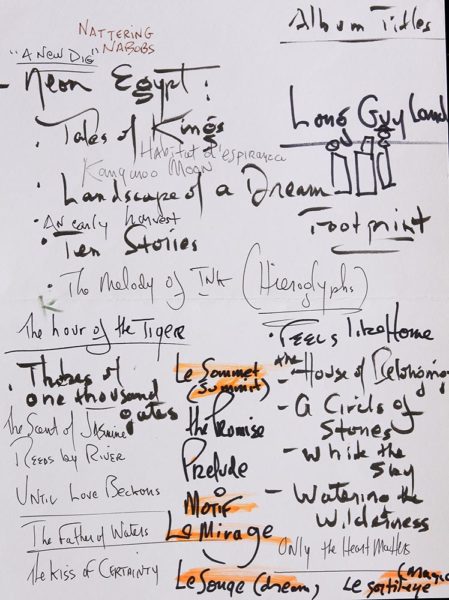 Album Titles
NATTERING
NABOBS
"A NEW DIG"
- Neon Egypt:
Long Guyland
· Tales of Kings
Habitat d'espiranza
Kanguroo Moon
· Landscape of a Dream
Footprint
· An early harvest
· Ten Stories
· The Melody of INK (Hieroglyphs)
K
The hour of the Tiger
· Feels like Home
· Thebes of
one thousand
gates
Le Sommet
(Summit)
- the House of Belonging
the Promise
- A Circle of
Stones
The Scent of Jasmine
Reeds by River
Prelude
- While the
Sky
Until Love Beckons
Motif
- Watering the
Wilderness
The Father of Waters
Le Mirage
Only the Heart Matters
The Kiss of Certainty
Le Songe (dream)
Le sortilege (Magic